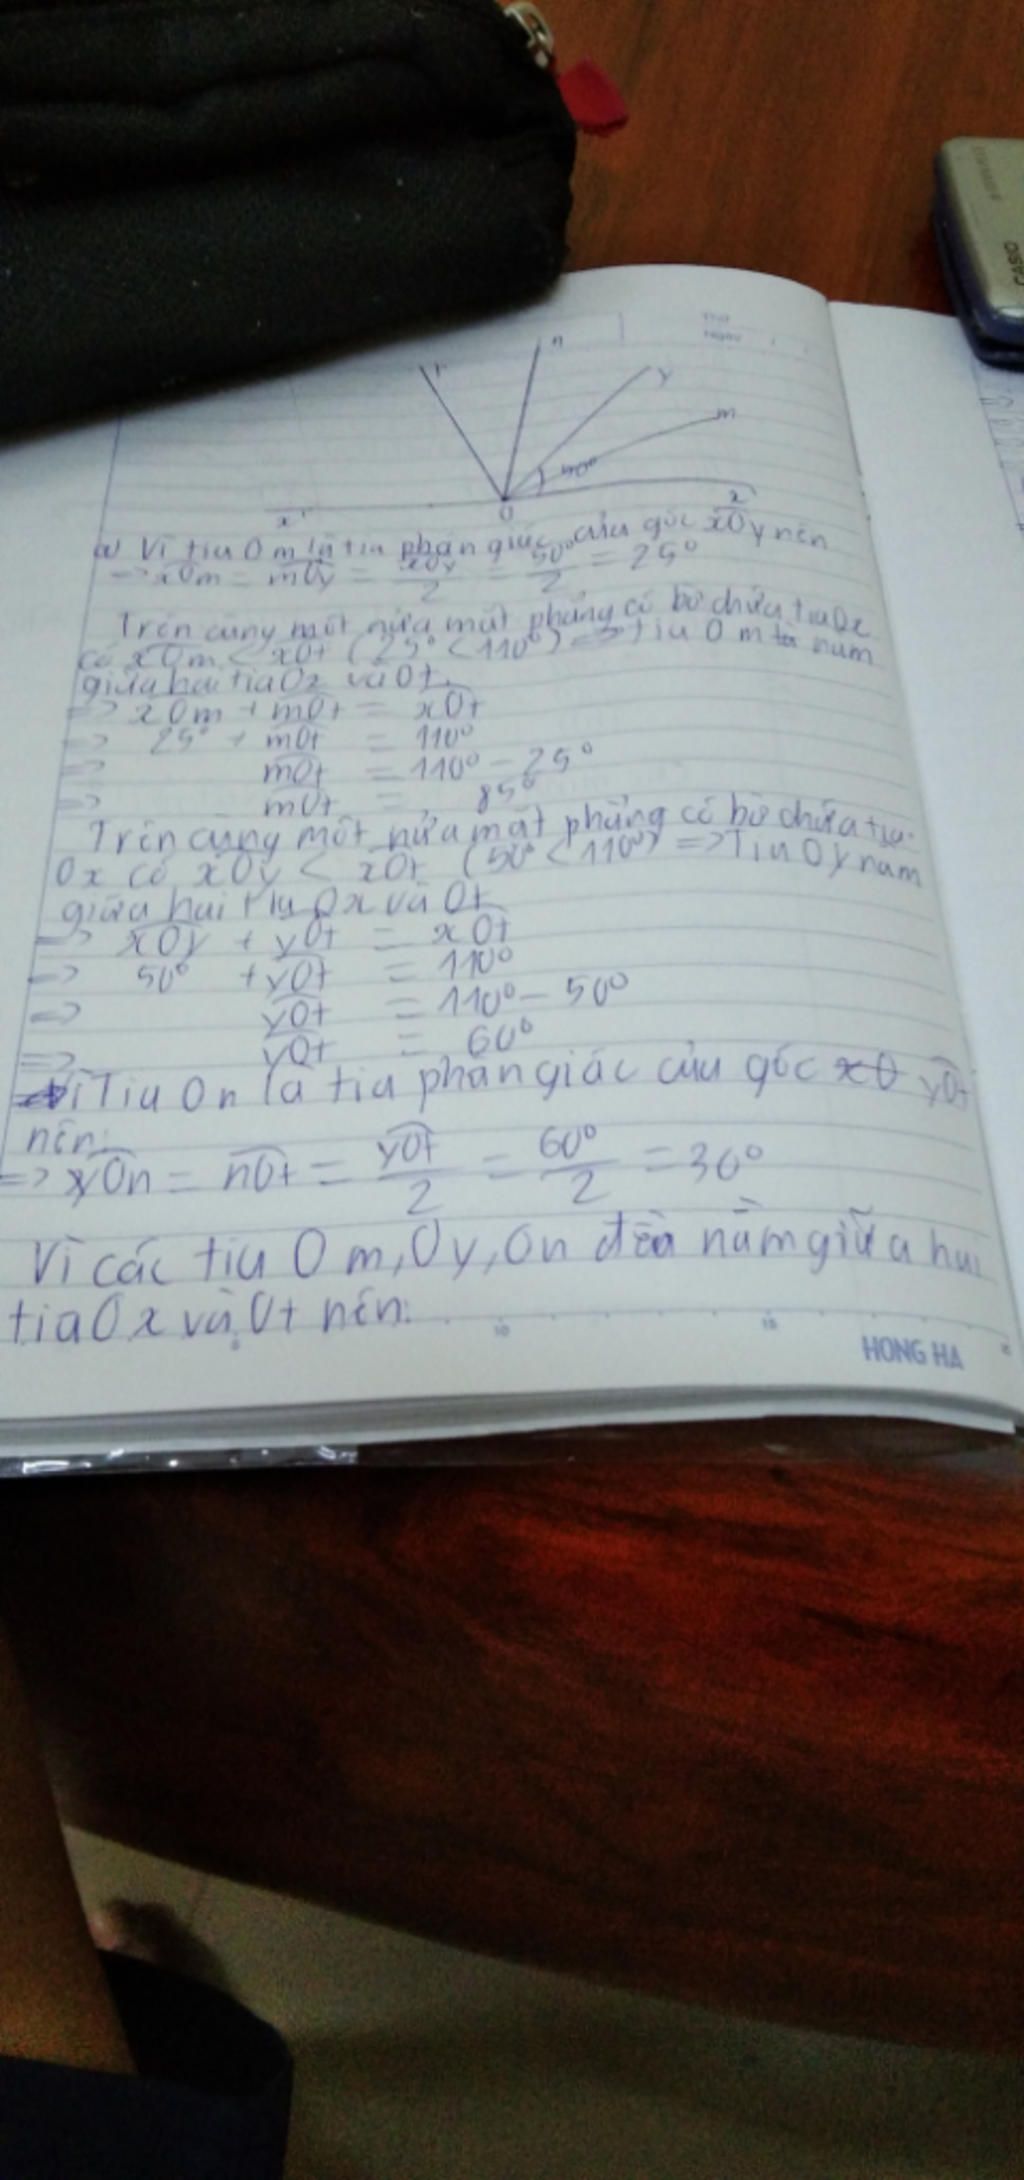 CASIO
Thứ
Ngày
t n y m
50°
x' O x
a) Vì tia Om là tia phân giác của góc xOy nên
=> xOm = mOy = xOy/2 = 50°/2 = 25°
Trên cùng một nửa mặt phẳng có bờ chứa tia Ox
có xOm < xOt (25° < 110°) => tia Om nằm
giữa hai tia Ox và Ot.
=> xOm + mOt = xOt
=> 25° + mOt = 110°
=> mOt = 110° - 25°
=> mOt = 85°
Trên cùng một nửa mặt phẳng có bờ chứa tia
Ox có xOy < xOt (50° < 110°) => Tia Oy nằm
giữa hai tia Ox và Ot
=> xOy + yOt = xOt
=> 50° + yOt = 110°
=> yOt = 110° - 50°
=> yOt = 60°
Vì Tia On là tia phân giác của góc yOt
nên:
=> yOn = nOt = yOt/2 = 60°/2 = 30°
Vì các tia Om, Oy, On đều nằm giữa hai
tia Ox và Ot nên:
5 10 15
HONG HA